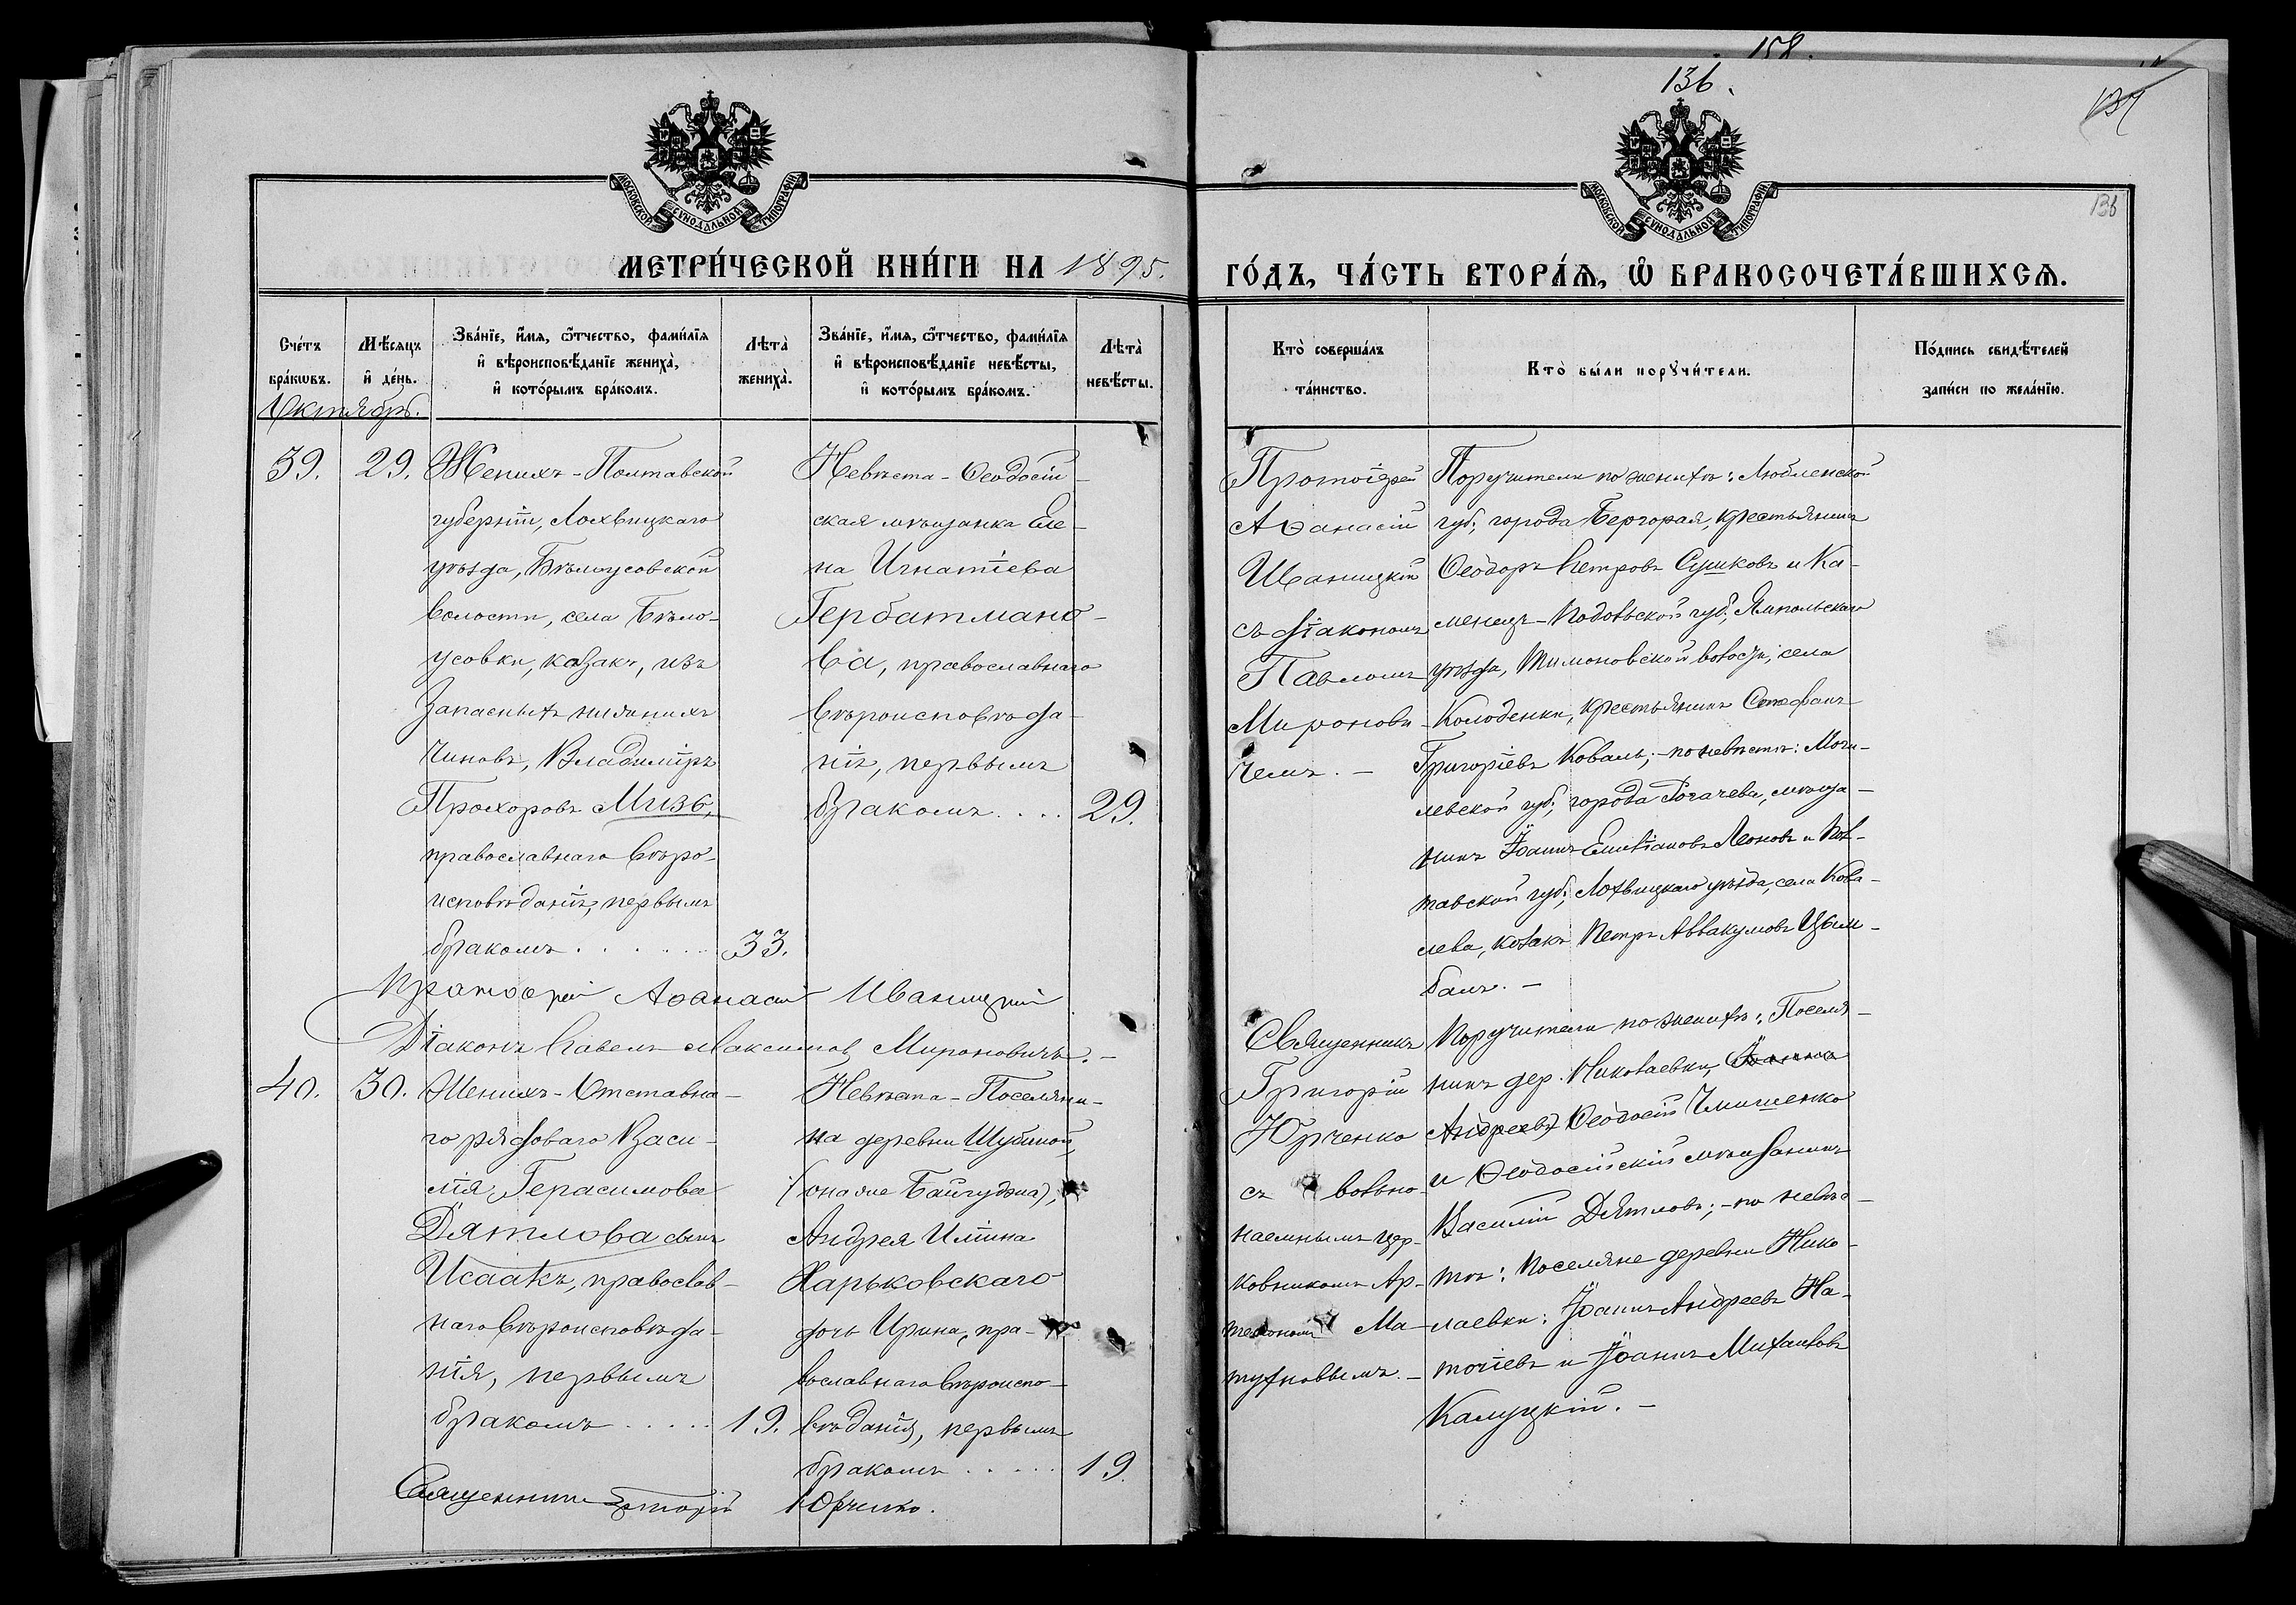 158.
136.
137
136
МОСКОВСКОЙ СѴНОДАЛЬНОЙ ТИПОГРАФІИ
МОСКОВСКОЙ СѴНОДАЛЬНОЙ ТИПОГРАФІИ
МЕТРИ́ЧЕСКОЙ КНИ́ГИ НА 1895.
ГО́ДЪ, ЧА́СТЬ ВТОРА́Ѧ, Ѡ҆ БРАКОСОЧЕТА́ВШИХСѦ.
Сче́тъ бра́кѡвъ.
Мѣ́сяцъ и҆ де́нь.
Зва́нїе, и҆́мѧ, ѻ҆́тчество, фами́лїѧ
и҆ вѣроисповѣ́данїе жениха̀,
и҆ кото́рымъ бра́комъ.
Лѣта̀ жениха̀.
Зва́нїе, и҆́мѧ, ѻ҆́тчество, фами́лїѧ
и҆ вѣроисповѣ́данїе невѣ́сты,
и҆ кото́рымъ бра́комъ.
Лѣта̀ невѣ́сты.
Кто̀ соверша́лъ
та́инство.
Кто̀ бы́ли порꙋчи́тели.
По́дпись свидѣ́телей
за́писи по жела́нїю.
Октябрь.
39.
29.
Женихъ - Полтавской
губерніи, Лохвицкаго
уѣзда, Бѣлоусовской
волости, села Бѣло-
усовки, казакъ, изъ
запасныхъ нижнихъ
чиновъ, Владиміръ
Прохоровъ Мизь,
православнаго вѣро-
исповѣданія, первымъ
бракомъ . . . . . .
33.
Невѣста - Ѳеодосій-
ская мѣщанка Еле-
на Игнатіева
Гербатмано-
ва, православнаго
вѣроисповѣда-
нія, первымъ
бракомъ . . . .
29.
Протоіерей
Аѳанасій
Иваницкій
съ діакономъ
Павломъ
Миронови-
чемъ. -
Поручители по женихѣ: Люблинской
губ., города Бергорая, крестьянинъ
Ѳеодоръ Петровъ Сушковъ и Ка-
менецъ-Подольской губ., Ямпольскаго
уѣзда, Тимоновской волости, села
Колоденки, крестьянинъ Стефанъ
Григоріевъ Коваль; - по невѣстѣ: Моги-
левской губ., города Рогачева, мѣща-
нинъ Іоаннъ Емиліановъ Леоновъ и Пол-
тавской губ., Лохвицкаго уѣзда, села Кова-
лева, козакъ Петръ Аввакумовъ Цым-
балъ. -
Протоіерей Аѳанасій Иваницкій
Діаконъ Павелъ Максимовъ Мироновичъ. -
40.
30.
Женихъ - Отставна-
го рядоваго Васи-
лія Герасимова
Дятлова сынъ
Исаакъ, православ-
наго вѣроисповѣда-
нія, первымъ
бракомъ . . . . .
19.
Невѣста - Поселяни-
на деревни Шубиной,
(она же Байгуджа),
Андрея Иліина
Харьковскаго
дочь Ирина, пра-
вославнаго вѣроиспо-
вѣданія, первымъ
бракомъ . . . . .
19.
Священникъ
Григорій
Юрченко
съ вольно-
наемнымъ цер-
ковникомъ Ар-
темономъ Ма-
тухновымъ. -
Поручители по женихѣ: Поселя-
нинъ дер. Николаевки, Іоаннъ
Андреевъ Ѳеодосій Чмишенко
и Ѳеодосійскій мѣщанинъ
Василій Дятловъ; - по невѣс-
тѣ: Поселяне деревни Нико-
лаевки: Іоаннъ Андреевъ На-
точіевъ и Іоаннъ Михаиловъ
Калуцкій. -
Священникъ Григорій Юрченко.